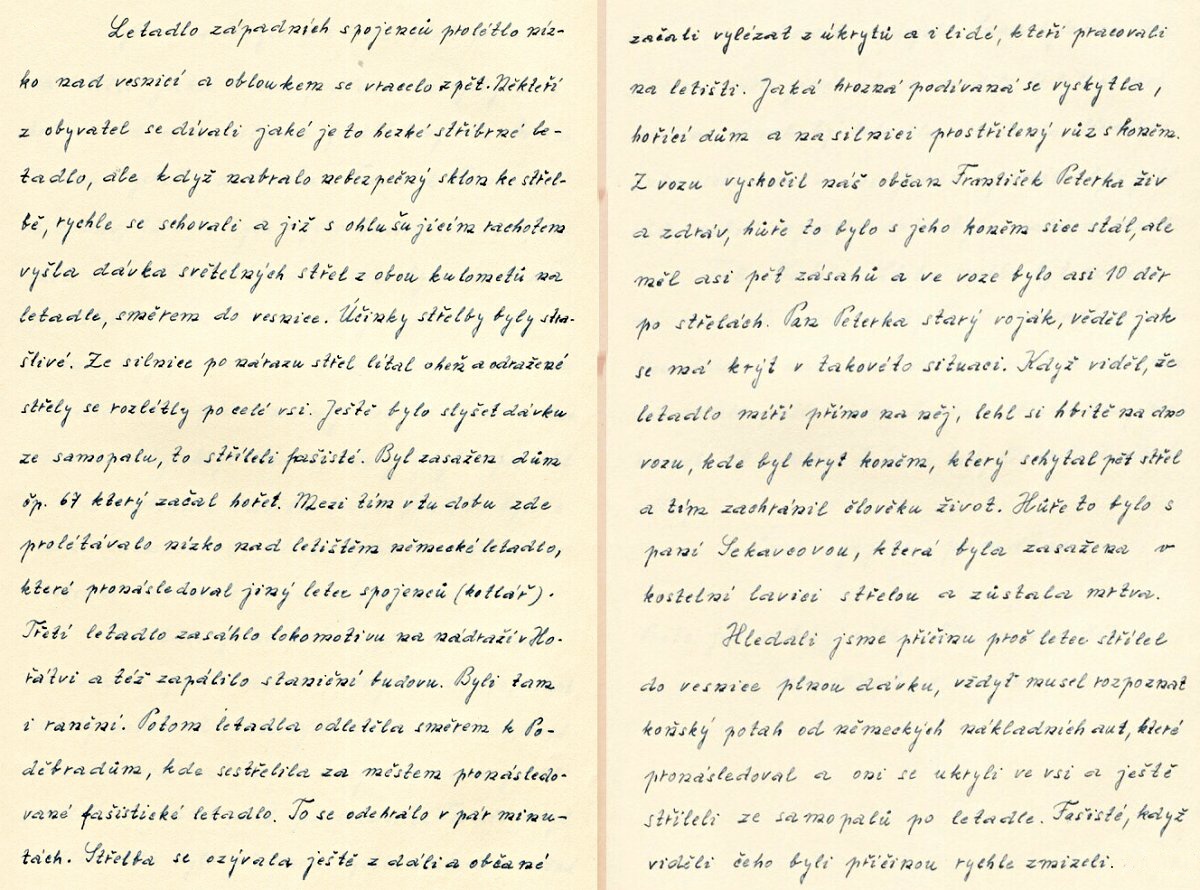 Letadlo západních spojenců prolétlo níz-
ko nad vesnicí a obloukem se vracelo zpět. Někteří
z obyvatel se dívali jaké je to hezké stříbrné le-
tadlo, ale když nabralo nebezpečný sklon ke střel-
bě, rychle se schovali a již s ohlušujícím rachotem
vyšla dávka světelných střel z obou kulometů na
letadle, směrem do vesnice. Účinky střelby byly stra-
šlivé. Ze silnice po nárazu střel lítal oheň a odražené
střely se rozlétly po celé vsi. Ještě bylo slyšet dávku
ze samopalu, to stříleli fašisté. Byl zasažen dům
čp. 67 který začal hořet. Mezi tím v tu dobu zde
prolétávalo nízko nad letištěm německé letadlo,
které pronásledoval jiný letec spojenců (kotlář).
Třetí letadlo zasáhlo lokomotivu na nádraží v Ho-
řátvi a též zapálilo staniční budovu. Byli tam
i ranění. Potom letadla odletěla směrem k Po-
děbradům, kde sestřelila za městem pronásledo-
vané fašistické letadlo. To se odehrálo v pár minu-
tách. Střelba se ozývala ještě z dáli a občané
začali vylézat z úkrytů a i lidé, kteří pracovali
na letišti. Jaká hrozná podívaná se vyskytla,
hořící dům a na silnici prostřílený vůz s koněm.
Z vozu vyskočil náš občan František Peterka živ
a zdráv, hůře to bylo s jeho koněm sice stál, ale
měl asi pět zásahů a ve voze bylo asi 10 děr
po střelách. Pan Peterka starý voják, věděl jak
se má krýt v takovéto situaci. Když viděl, že
letadlo míří přímo na něj, lehl si hbitě na dno
vozu, kde byl kryt koněm, který schytal pět střel
a tím zachránil člověku život. Hůře to bylo s
paní Sekavcovou, která byla zasažena v
kostelní lavici střelou a zůstala mrtva.
Hledali jsme příčinu proč letec střílel
do vesnice plnou dávku, vždyť musel rozpoznat
koňský potah od německých nákladních aut, které
pronásledoval a oni se ukryli ve vsi a ještě
stříleli ze samopalů po letadle. Fašisté, když
viděli čeho byli příčinou rychle zmizeli.